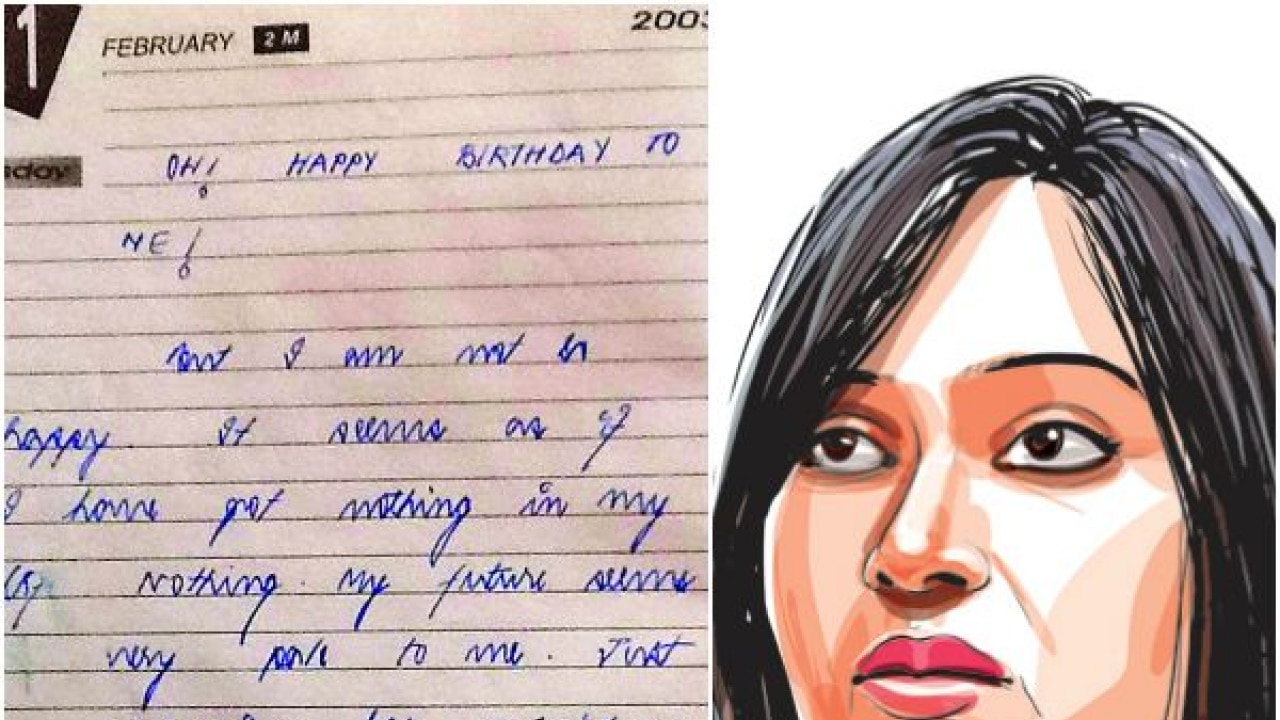 1 FEBRUARY 2 M 2003
OH! HAPPY BIRTHDAY TO
ME!
But I am not
happy. It seems as if
I have got nothing in my
Nothing. My future seems
very pale to me. Just